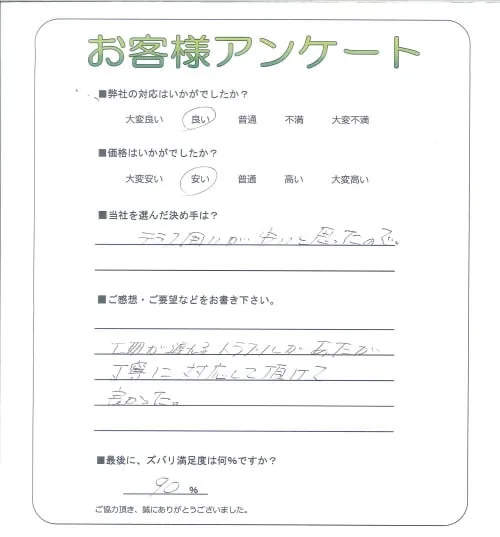 お客様アンケート
■弊社の対応はいかがでしたか？
大変良い 良い 普通 不満 大変不満
■価格はいかがでしたか？
大変安い 安い 普通 高い 大変高い
■当社を選んだ決め手は？
テラス囲いが安いと思ったので。
■ご感想・ご要望などをお書き下さい。
工期が遅れるトラブルがあったが
丁寧に対応して頂けて
良かった。
■最後に、ズバリ満足度は何％ですか？
90 %
ご協力頂き、誠にありがとうございました。